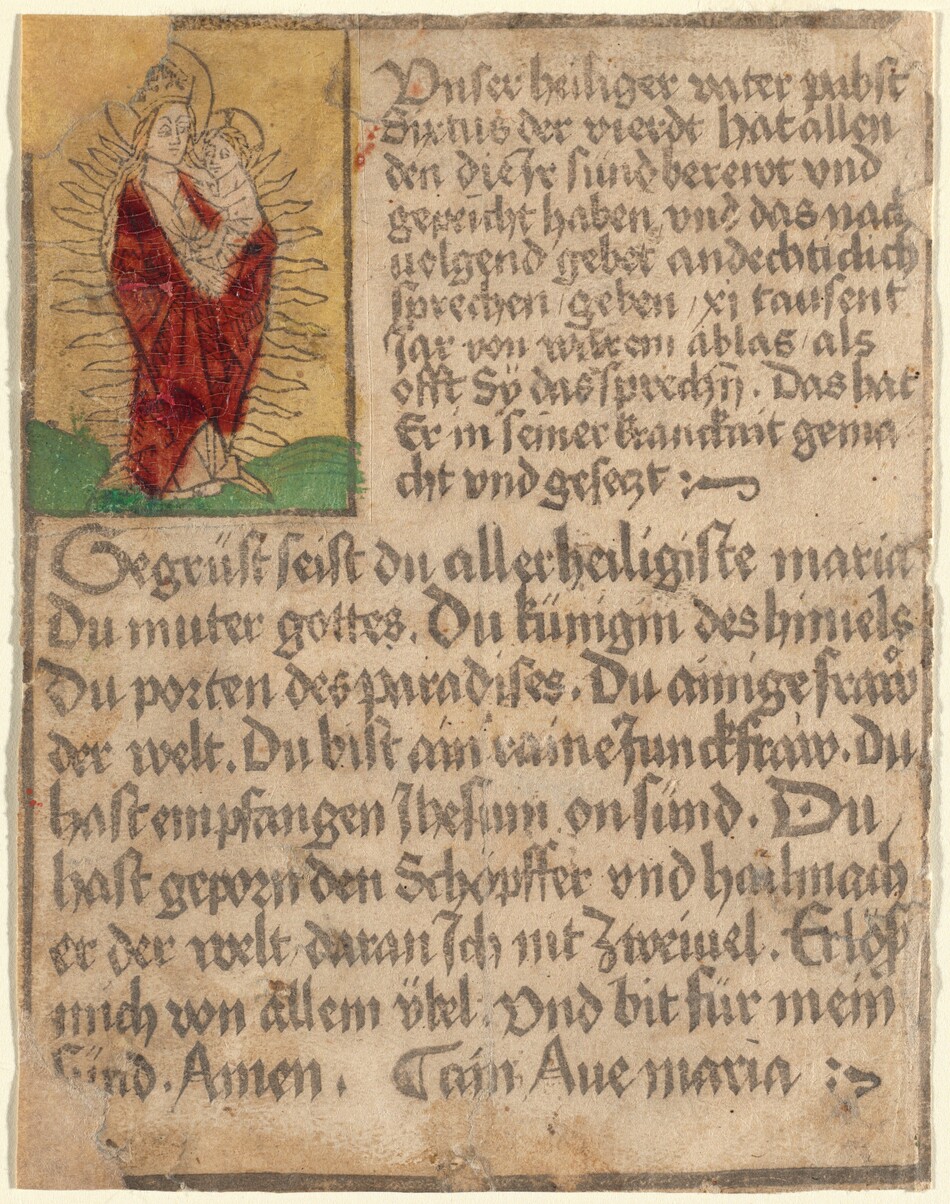 Vnser heiliger vater pabst
Sixtus der vierdt hat allen
den die Ir sünd berewt vnd
gepeicht haben, vnd das nach
uolgend gebet andechticlich
sprechen / geben / xj tausent
Jar von warem ablas / als
offt Sÿ das sprechn. Das hat
Er in seiner kranckait gema
cht vnd gesetzt :~
Gegrüst seist du allerheiligiste maria
Du muter gottes. Du künigin des himels
Du porten des paradises. Du ainige fraw
der welt. Du bist ain raine Junckfraw. Du
hast empfangen Jhesum on sünd. Du
hast geporn den Schöpffer vnd hailmach
er der welt daran Ich nit Zweiuel. Erlös
mich von allem übel. Vnd bit für mein
sünd. Amen. Cain Aue maria :~